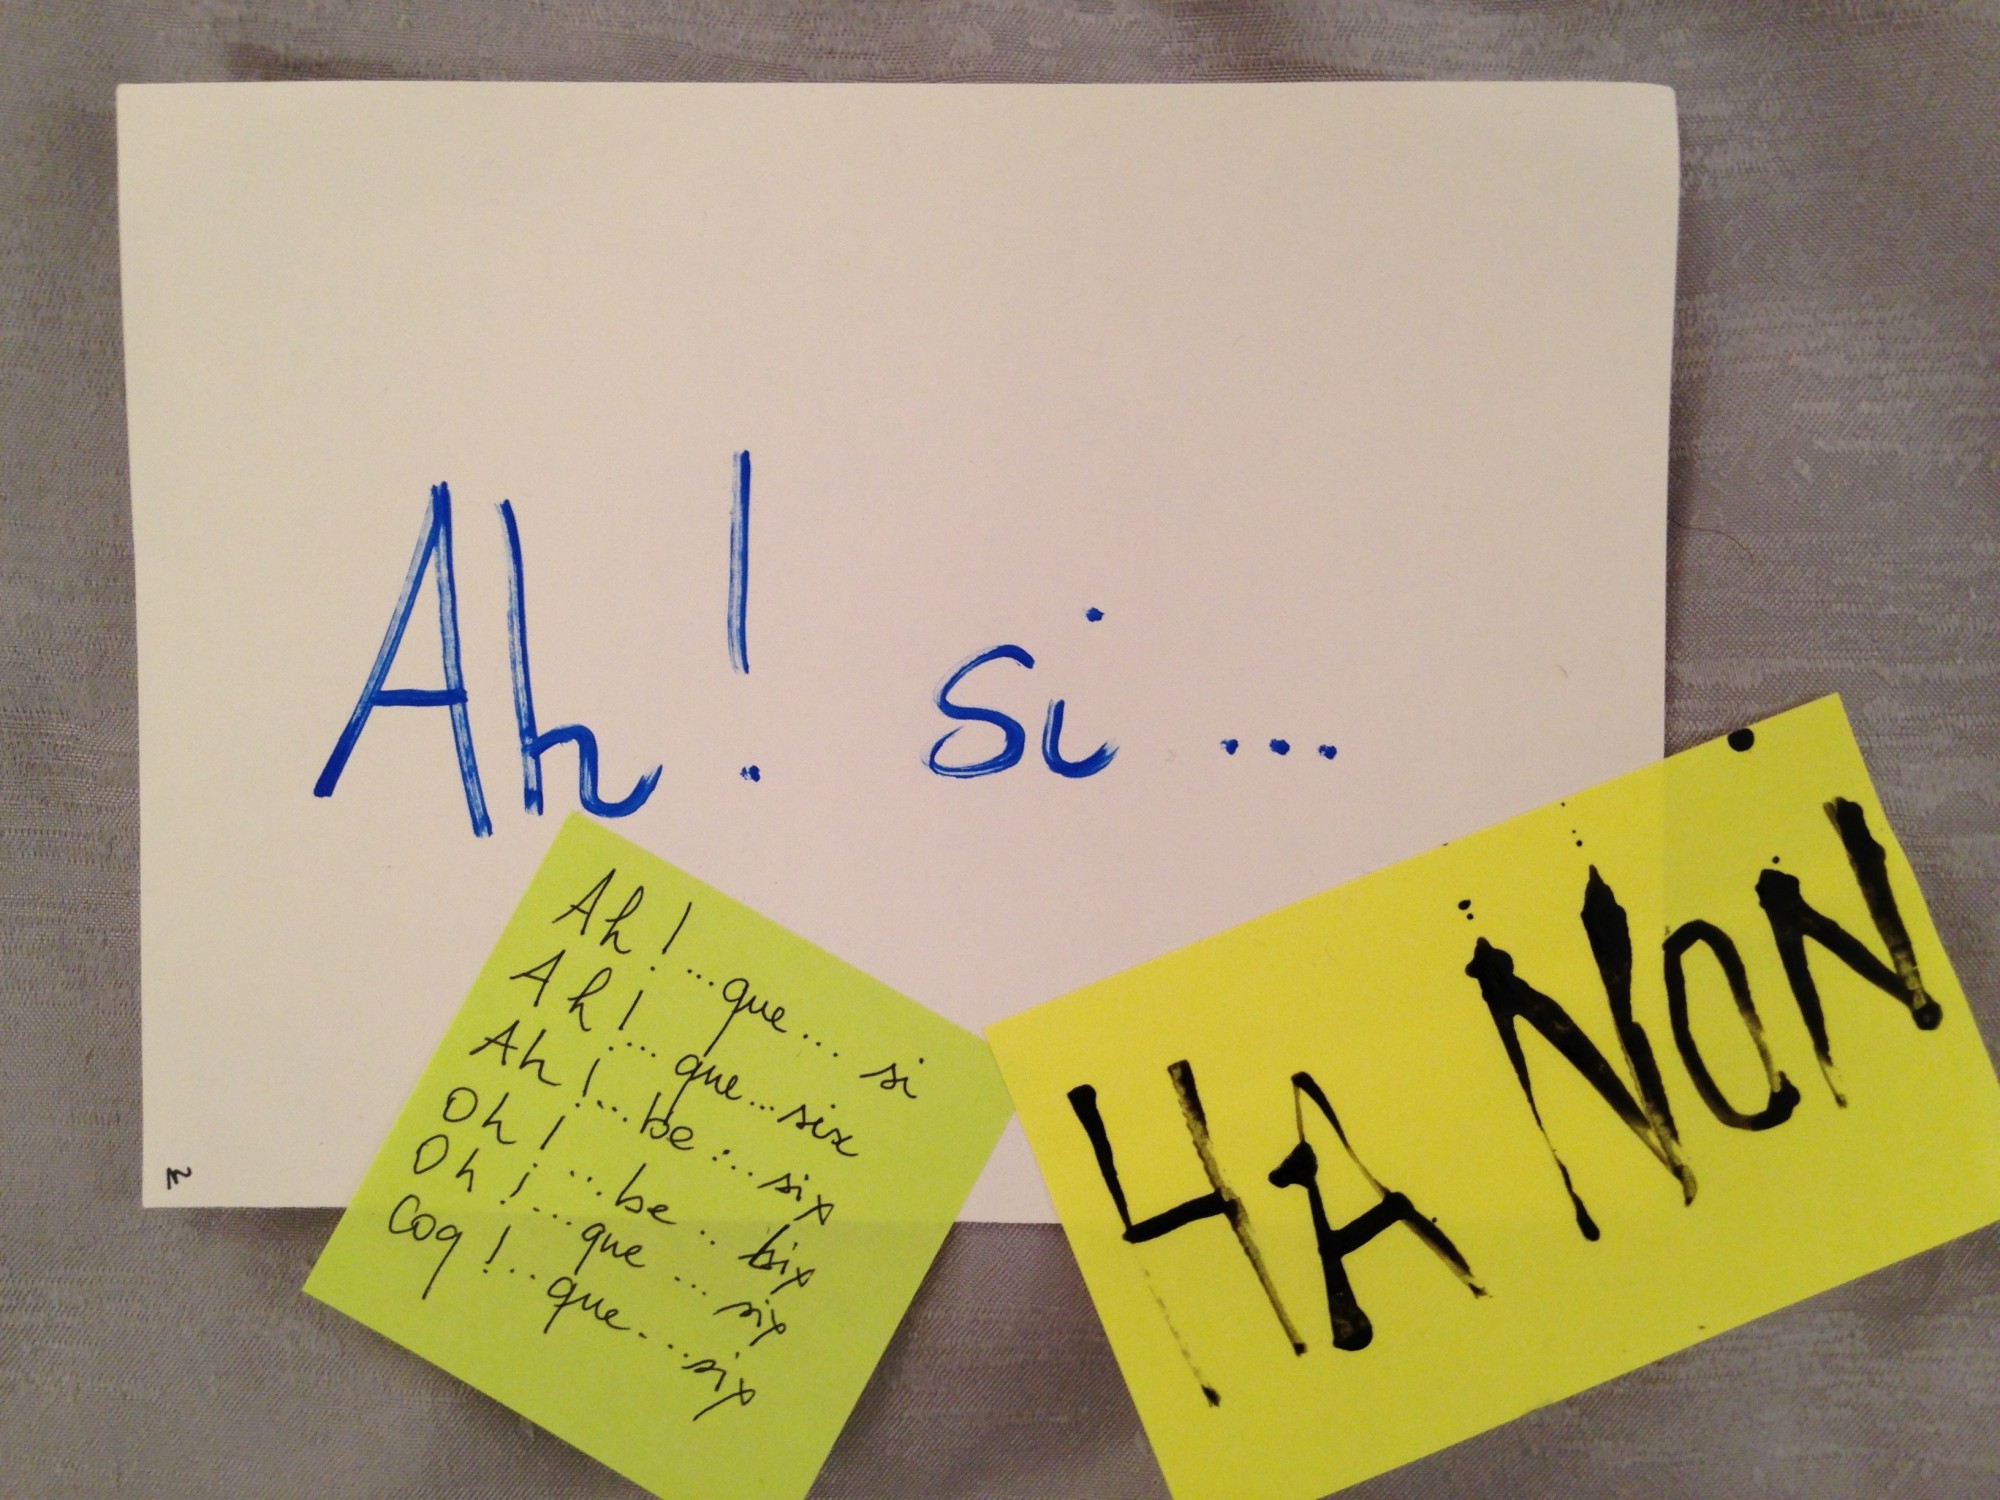 Ah! si ...
Ah! ... que ... si
Ah! ... que ... six
Ah! ... be ... six
Oh! ... be ... bix
Oh! ... que ... six
Coq! ... que ... six
HA NON